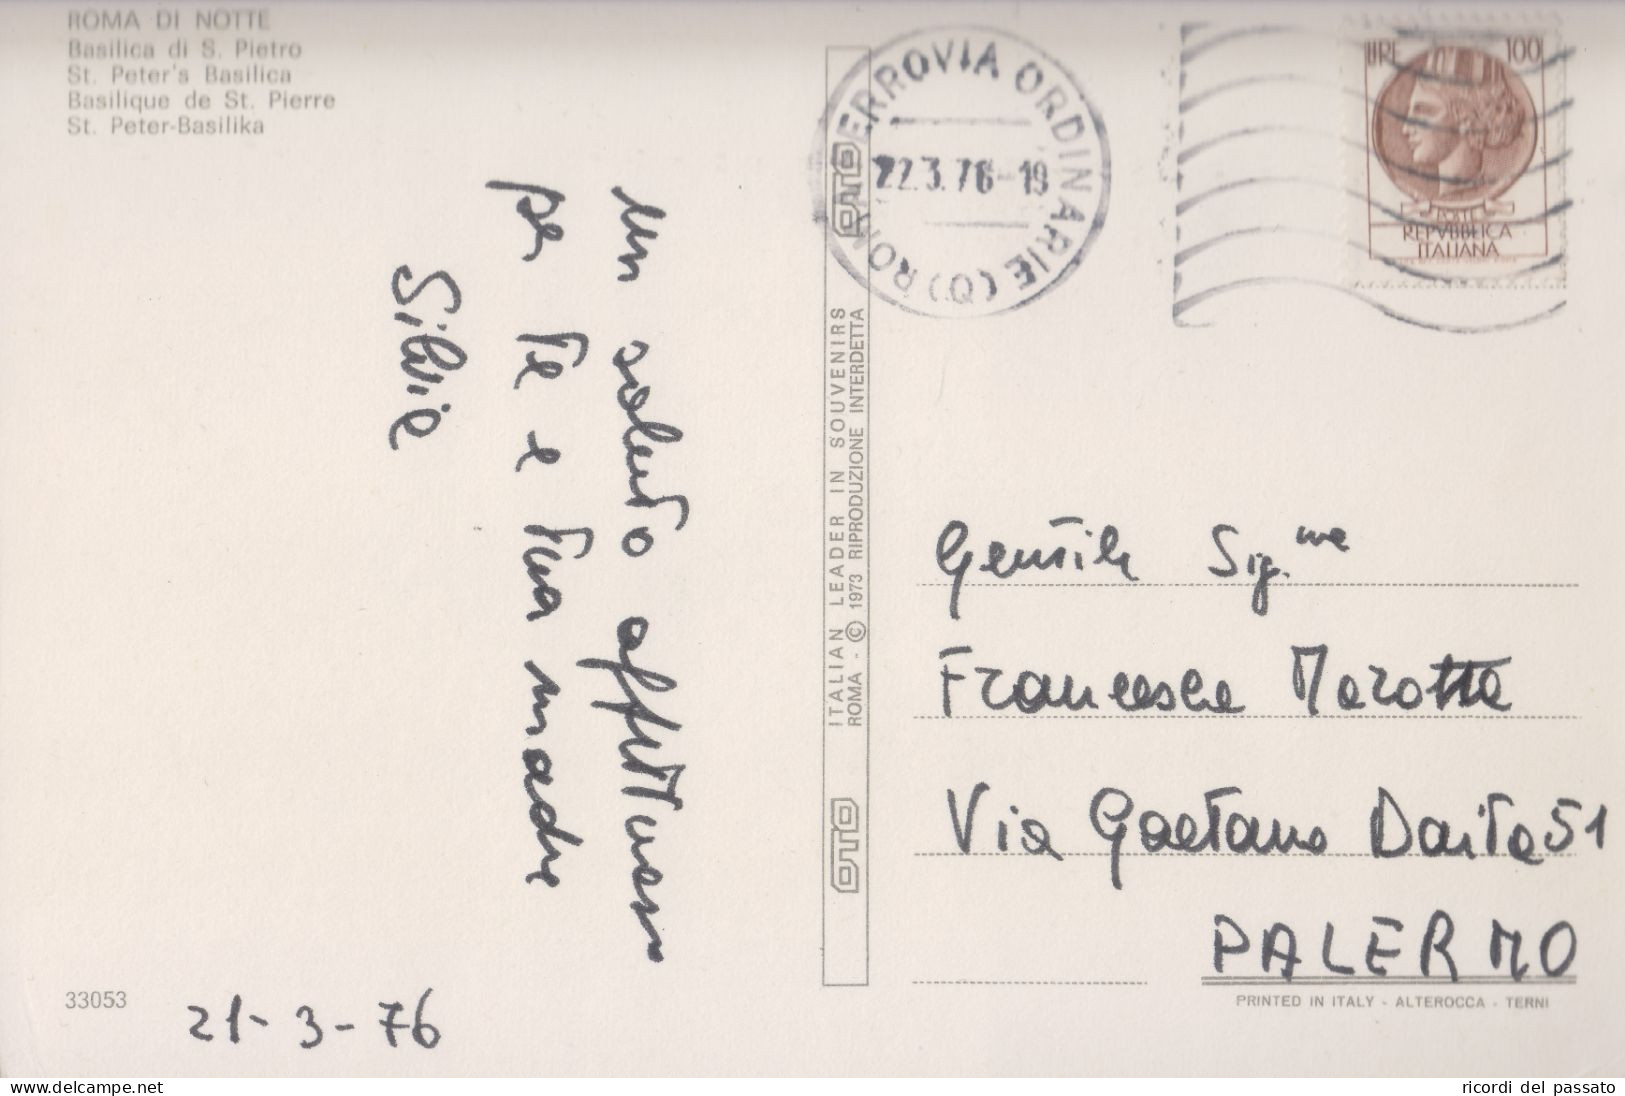 ROMA DI NOTTE
Basilica di S. Pietro
St. Peter's Basilica
Basilique de St. Pierre
St. Peter-Basilika
Un saluto affettuoso
per Te e tua madre
Silvia
21-3-76
33053
OTO
ITALIAN LEADER IN SOUVENIRS
ROMA - © 1973 RIPRODUZIONE INTERDETTA
OTO
ROMA FERROVIA ORDINARIE (O)
22.3.76-19
LIRE 100
POSTE
REPVBBLICA
ITALIANA
Gentile Sig.na
Francesca Marotta
Via Gaetano Daita 51
PALERMO
PRINTED IN ITALY - ALTEROCCA - TERNI
ricordi del passato
www.delcampe.net